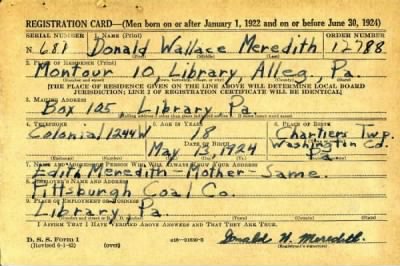 REGISTRATION CARD—(Men born on or after January 1, 1922 and on or before June 30, 1924)
SERIAL NUMBER 1. NAME (Print) ORDER NUMBER
N 681 Donald Wallace Meredith 12788
2. PLACE OF RESIDENCE (Print)
Montour 10 Library, Alleg, Pa.
[THE PLACE OF RESIDENCE GIVEN ON THE LINE ABOVE WILL DETERMINE LOCAL BOARD
JURISDICTION; LINE 2 OF REGISTRATION CERTIFICATE WILL BE IDENTICAL]
3. MAILING ADDRESS
Box 105, Library, Pa.
4. TELEPHONE 5. AGE IN YEARS 6. PLACE OF BIRTH
Colonial 1244W 18 Chartiers Twp.
DATE OF BIRTH Washington Co.
May 13, 1924 Pa
7. NAME AND ADDRESS OF PERSON WHO WILL ALWAYS KNOW YOUR ADDRESS
Edith Meredith-Mother-Same.
8. EMPLOYER'S NAME AND ADDRESS
Pittsburgh Coal Co.
9. PLACE OF EMPLOYMENT OR BUSINESS
Library, Pa.
I AFFIRM THAT I HAVE VERIFIED ABOVE ANSWERS AND THAT THEY ARE TRUE.
D. S. S. Form 1
(Revised 6-1-42) (over) Donald W. Meredith